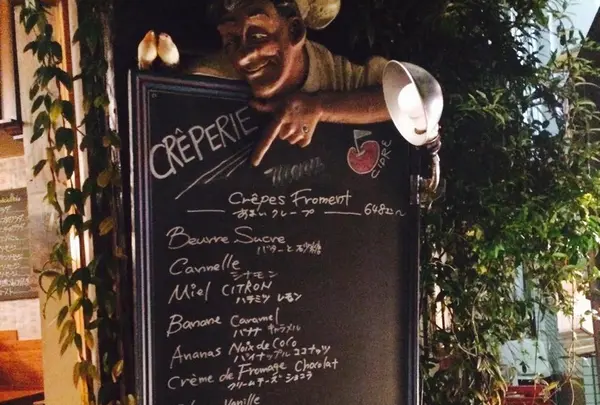 CRÊPERIE
menu
CIDRE
Crêpes Froment
あまいクレープ 648エン〜
Beurre Sucre
バターと砂糖
Cannelle
シナモン
Miel CITRON
ハチミツ レモン
Banane Caramel
バナナ キャラメル
Ananas Noix de Coco
パイナップル ココナッツ
Crème de Fromage Chocolat
クリームチーズ ショコラ
Vanille